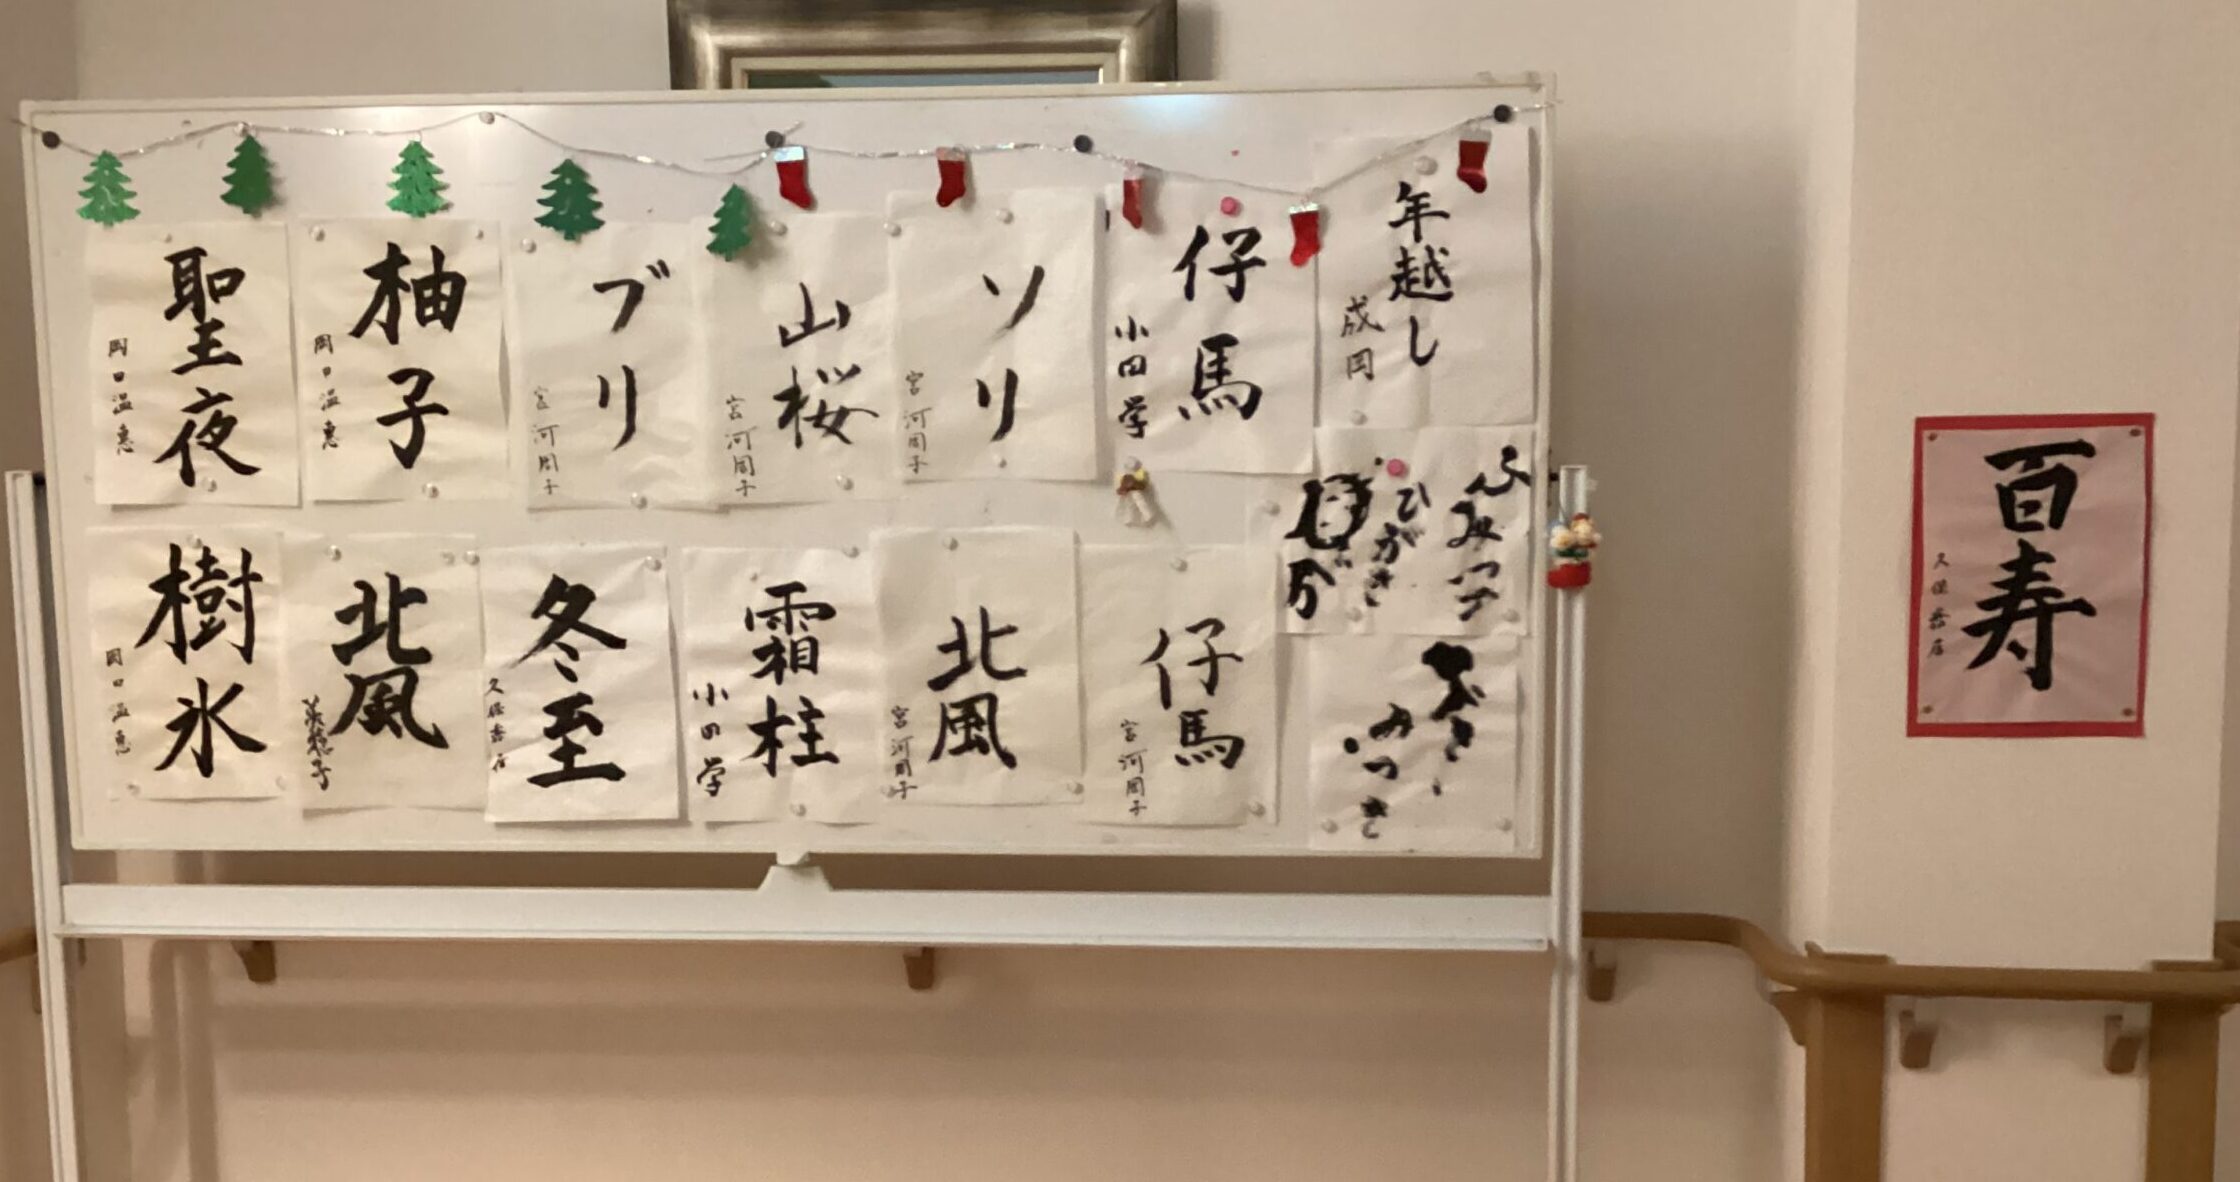 聖夜
岡口温恵
柚子
岡口温恵
ブリ
宮河周子
山桜
宮河周子
ソリ
宮河周子
仔馬
小田学
年越し
成岡
樹氷
岡口温恵
北風
冬至
霜柱
小田学
北風
宮河周子
仔馬
宮河周子
ひがき
百寿